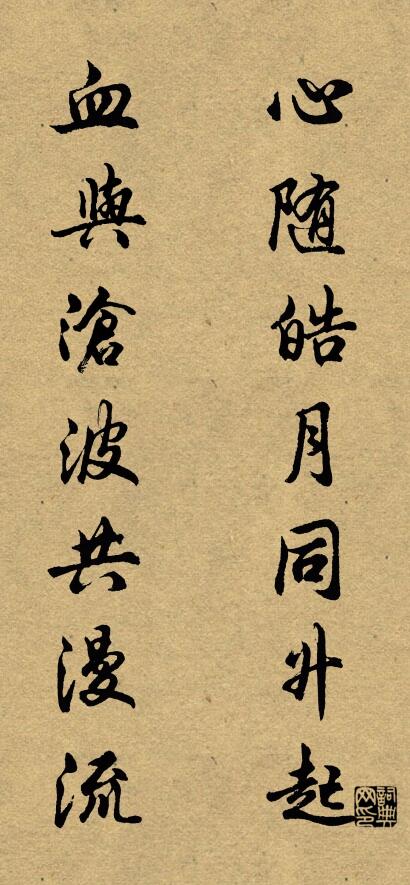 心随皓月同升起
血與滄波共漫流
詞典网印